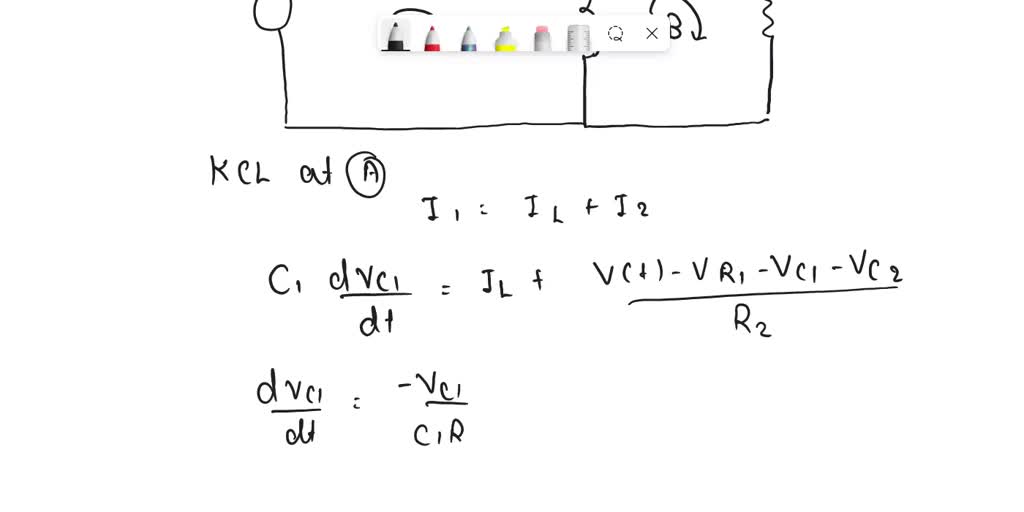 B
KCL at A
I1 = IL + I2
C1 dVC1/dt = IL + (V(t) - VR1 - VC1 - VC2)/R2
dVC1/dt = -VC1/C1R